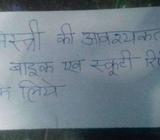 मिस्त्री की आवश्यकता
बाइक एवं स्कूटी रि
के लिये